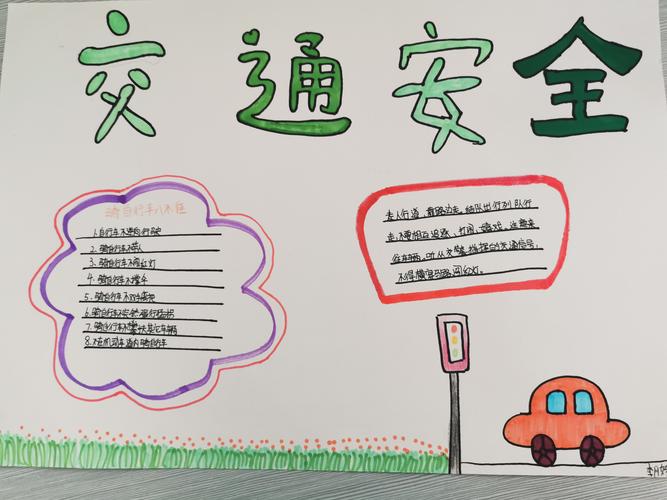 交通安全
骑自行车八不准
1.自行车不逆向行驶
2.骑自行车不带人
3.骑自行车不闯红灯
4.骑自行车不撑伞
5.骑自行车不双手离把
6.骑自行车不突然强行猛拐
7.骑自行车不攀扶其它车辆
8.不在机动车道内骑自行车
走人行道,靠路边走,结队出行列队行
走,不要相互追逐、打闹、嬉戏,注意来
往车辆。听从交警指挥自觉交通信号,
不得横穿马路闯红灯。